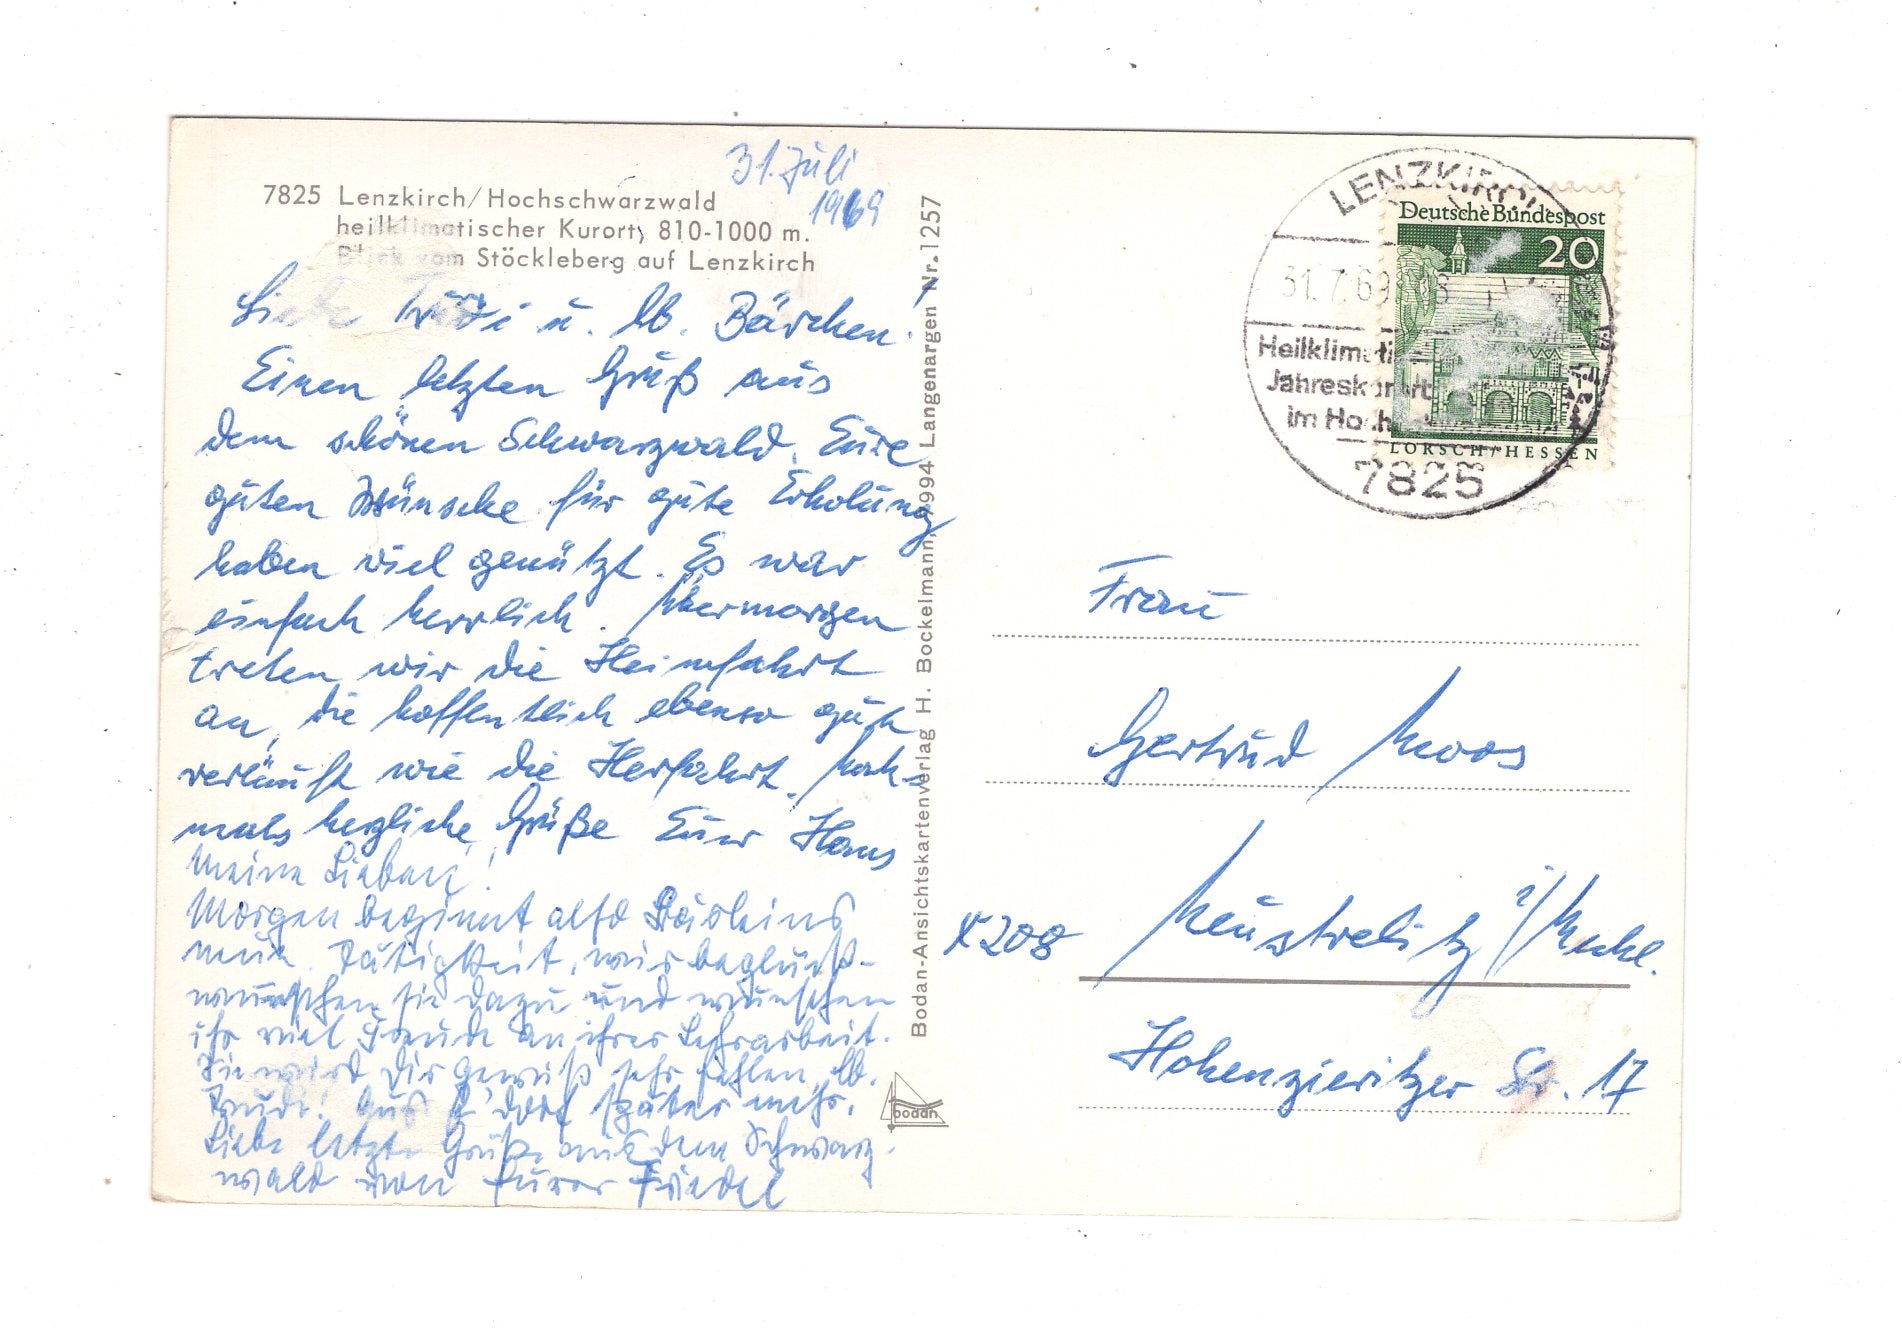 31. Juli
1969
7825 Lenzkirch/Hochschwarzwald
heilklimatischer Kurort, 810-1000 m.
Blick vom Stöckleberg auf Lenzkirch
Liebe Trudi u. lb. Bärchen!
Einen letzten Gruß aus
dem schönen Schwarzwald. Eure
guten Wünsche für gute Erholung
haben viel genützt. Es war
einfach herrlich. Übermorgen
treten wir die Heimfahrt
an, die hoffentlich ebenso gut
verläuft wie die Herfahrt. Noch-
mals herzliche Grüße Euer Hans
Meine Lieben!
Morgen beginnt also Bärleins
neue Tätigkeit, wir beglück-
wünschen sie dazu und wünschen
ihr viel Freude an ihrer Lehrarbeit.
Sie wird Dir gewiß sehr fehlen, lb.
Trudi! Aus dorf später mehr.
Liebe letzte Grüße aus dem Schwarz-
wald von Eurer Friedel
Bodan-Ansichtskartenverlag H. Bockelmann, 7994 Langenargen Nr. 1257
bodan
LENZKIRCH
31.7.69
Heilklimati
Jahreskurort
im Hoch
7825
Deutsche Bundespost
20
LORSCH/HESSEN
Frau
Gertrud Moos
X 208 Neustrelitz i/Meckl.
Hohenzieritzer Str. 17